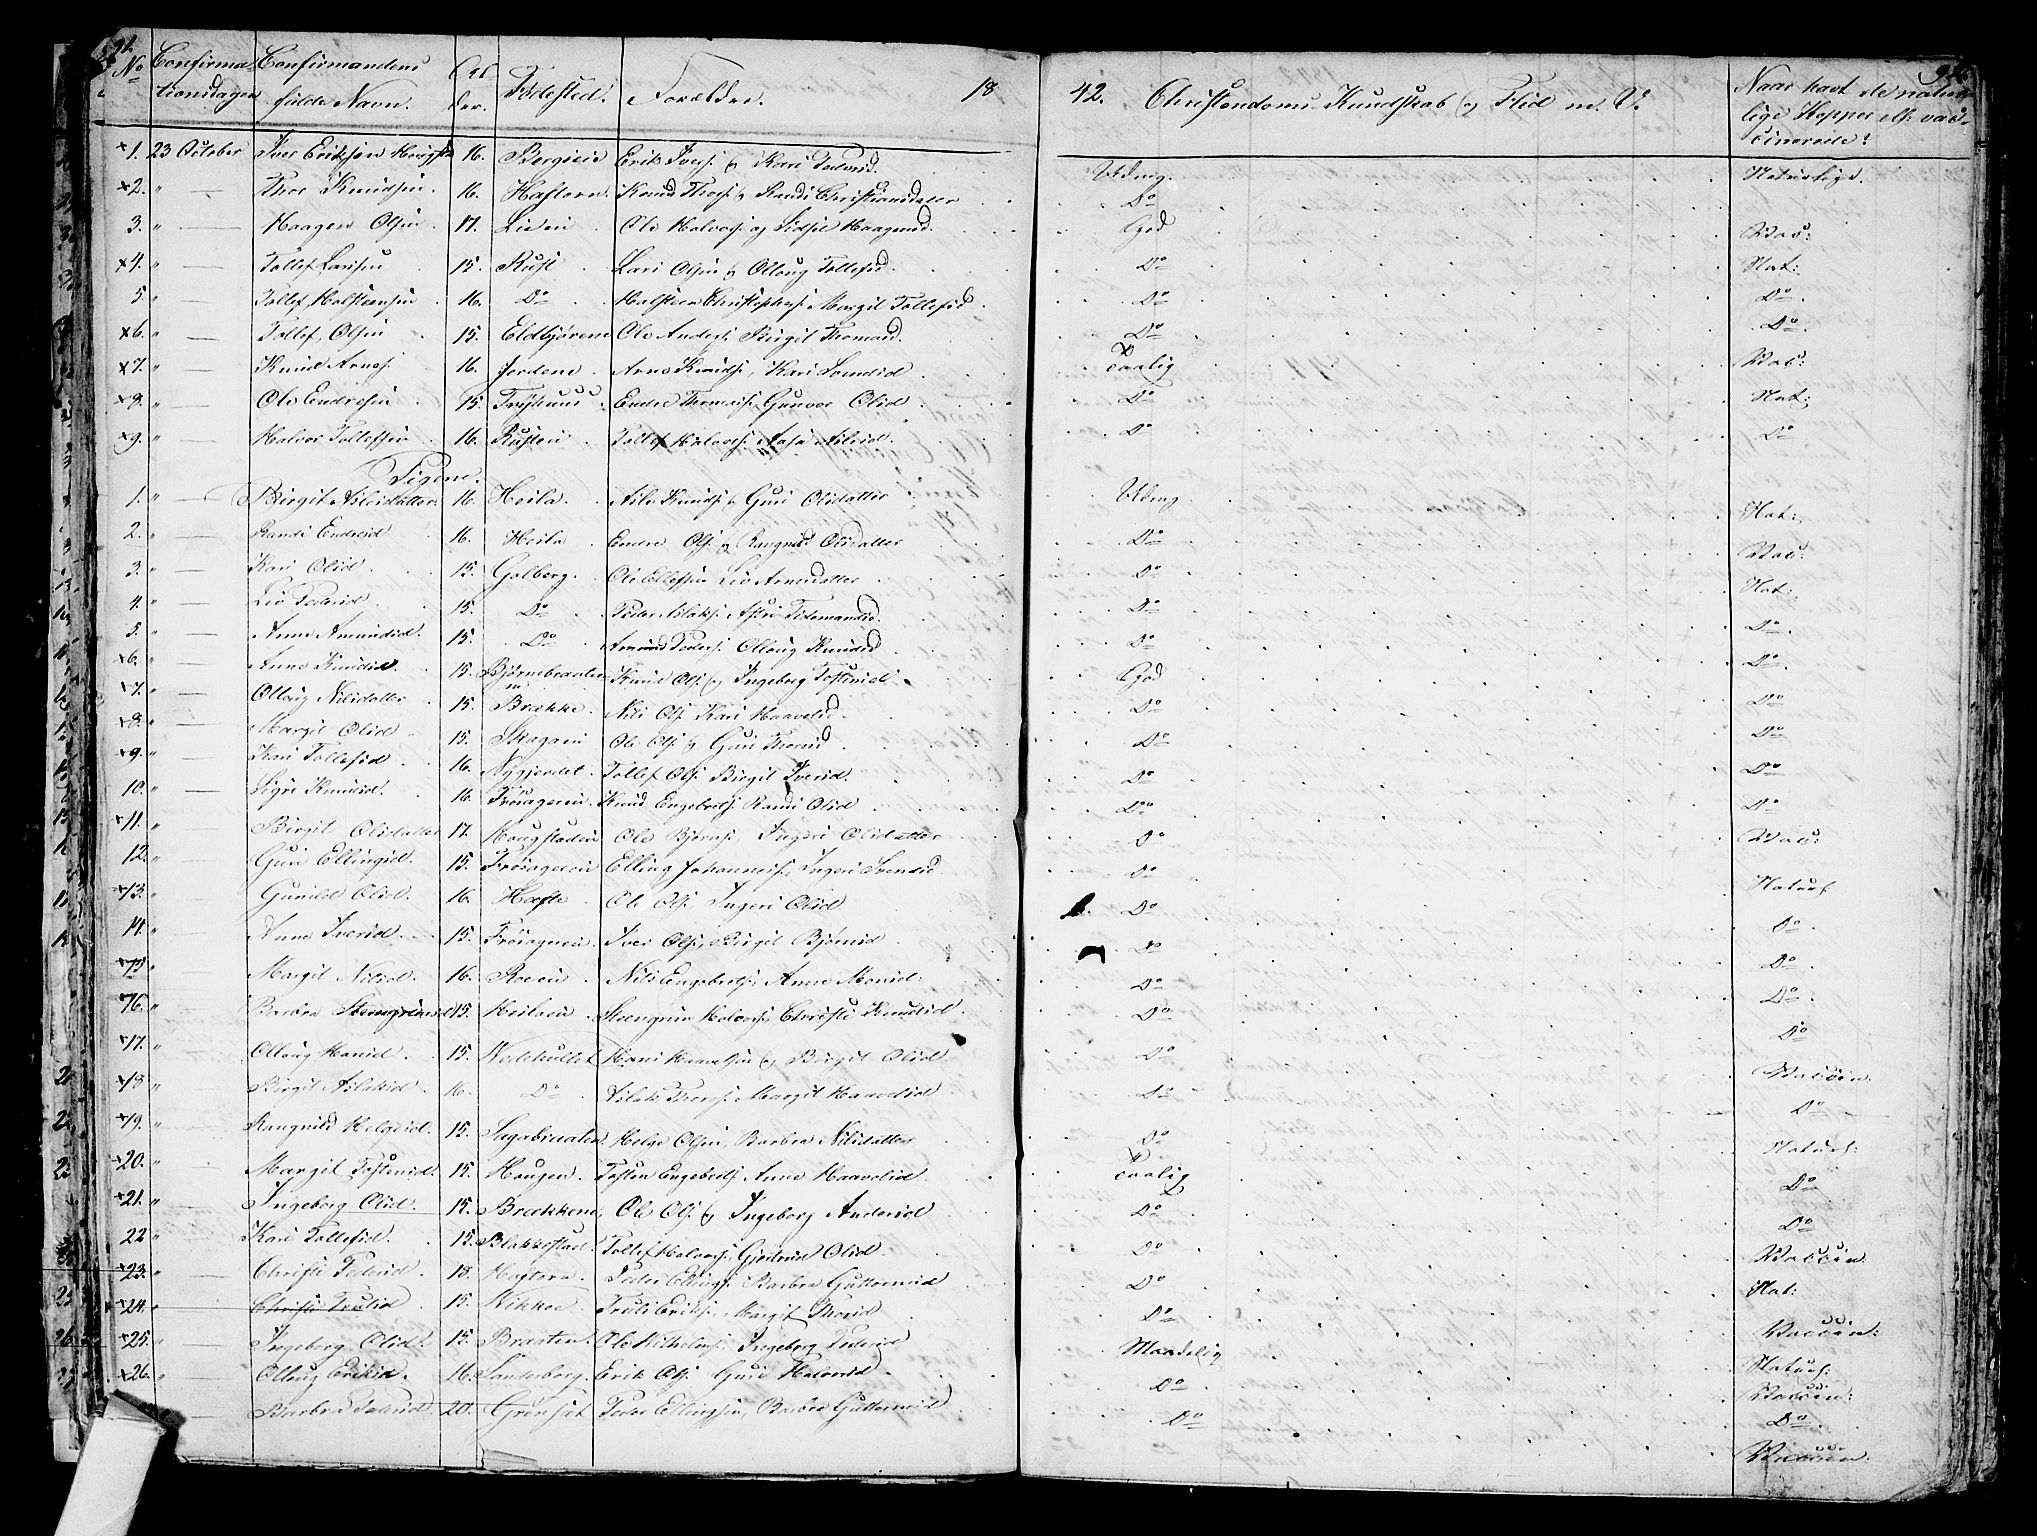 No Confirma- Confirmandens Al- Fødested. Forældre. 18 42. Christendoms Kundskab og Flid m. V. Naar havt de natur-
tionsdagen fulde Navn. der. lige Kopper ell: vac-
cinerede?
1. 23 October Iver Eriksen 16. Erik Ivers: og Kari Udmg. Naturlige.
2. " Thor Knudsen 16. Knud Thors: og Randi Christiansdatter Do
3. " Haagen Olsen 17. Lien Ole Halvors: og Sidsel Haagensd. God Vac:
4. " Tollef Larsen 15. Rust Lars Olsen og Ollaug Tollefsd. Do Nat:
5. " Tollef Halsteensen 16. Do Halsteen Christophers: Margit Tollefsd Do Do
6. " Tollef Olsen 15. Eldbjørene Ole Anders: Birgit Thomasd. Do Do
7. " Knud Arnes: 16. Jordene Arne Knuds:, Kari Svendsd Taalig Vac:
8. " Ole Endresen 15. Endre Thomass: Gunvor Olsd. Do Nat:
9. " Halvor Tollefsen 16. Rusten Tollef Halvors: Aasa Nilsd. Do Do
Pigene.
1. " Birgit Asledatter 16. Heila Asle Knuds: og Guri Olsdatter Udmg Nat:
2. " Randi Endresd 16. Heila Endre Ols: og Rangnild Olsdatter Do Vac:
3. " Kari Olsd. 15. Golberg Ole Ellefsen Liv Arnesdatter Do Nat:
4. " Liv Pedersd. 15. Do Peder Aslaks: Astri Tidemandsd. Do Do
5. " Anne Amundsd. 15. Do Amund Peders: Ollaug Knudsd Do Do
6. " Anne Knudsd. 15. Bjørnebraaten Knud Ols: og Ingeborg Tostensd. God Do
7. " Ollaug Nilsdatter 15. Brække Nils Ols: Kari Haavelsd. Do Do
8. " Margit Olsd 15. Skagen Ole Ols: og Guri Thorsd Do Do
9. " Kari Tollefsd 16. Nygjerdet Tollef Ols: Birgit Iversd. Do Do
10. " Sigri Knudsd. 16. Frøsageien Knud Engebrets: Randi Olsd Do
11. " Birgit Olsdatter 17. Haugstadeie Ole Bjørns: Ingeri Olsdatter Do Vac:
12. " Guri Ellingsd. 15. Frøsageien Elling Johanness: Ingeri Svendsd Do
13. " Gunild Olsd. 16. Hæfte Ole Ols: Ingeri Olsd Do Naturl
14. " Anne Iversd. 15. Frøsageien Iver Ols: Birgit Bjørnsd Do Do
15 " Margit Nilsd. 16. Roeen Nils Engebrets: Anne Monsd. Do Do
16. " Barbra Steengrimsd 15. Heilaeie Steengrim Halvors: Christi Knudsd Do Do
17. " Ollaug Hansd. 15. Nedehullet Hans Haavelsen og Birgit Olsd Do Do
18 " Birgit Aslaksd 16. Do Aslak Thors: Margit Haavelsd Do Vaccin.
19. " Rangnild Helgesd. 15. Sagabraaten Helge Olsen, Barbra Nilsdatter Do Do
20. " Margit Tostensd. 15. Haugen. Tosten Engebrets: Anne Haavelsd Taalig Naturl:
21. " Ingeborg Olsd. 15. Brækkene Ole Ols: og Ingeborg Andersd Do Do
22 " Kari Tollefsd. 15. Blakkestad Tollef Halvors: Gjertrud Olsd. Do Do
23. " Christi Pedersd. 18. Haftorn Peder Ellings: Barbra Guttormsd Do Vaccin
24. " Christi Trulsd 15. Nikkoe Truls Eriks: Margit Thorsd Do Nat:
25. " Ingeborg Olsd. 15. Braaten Ole Wilhelms: Ingeborg Pedersd Maadelig Vaccin:
26. " Ollaug Eriksd. 16. Sanderborg. Erik Ols: Guri Halvorsd Do Naturl:
Barbra Pedersd. 20. Grønset Peder Ellingsen, Barbra Guttormsd Do Vaccin:
Do
Vaccin.